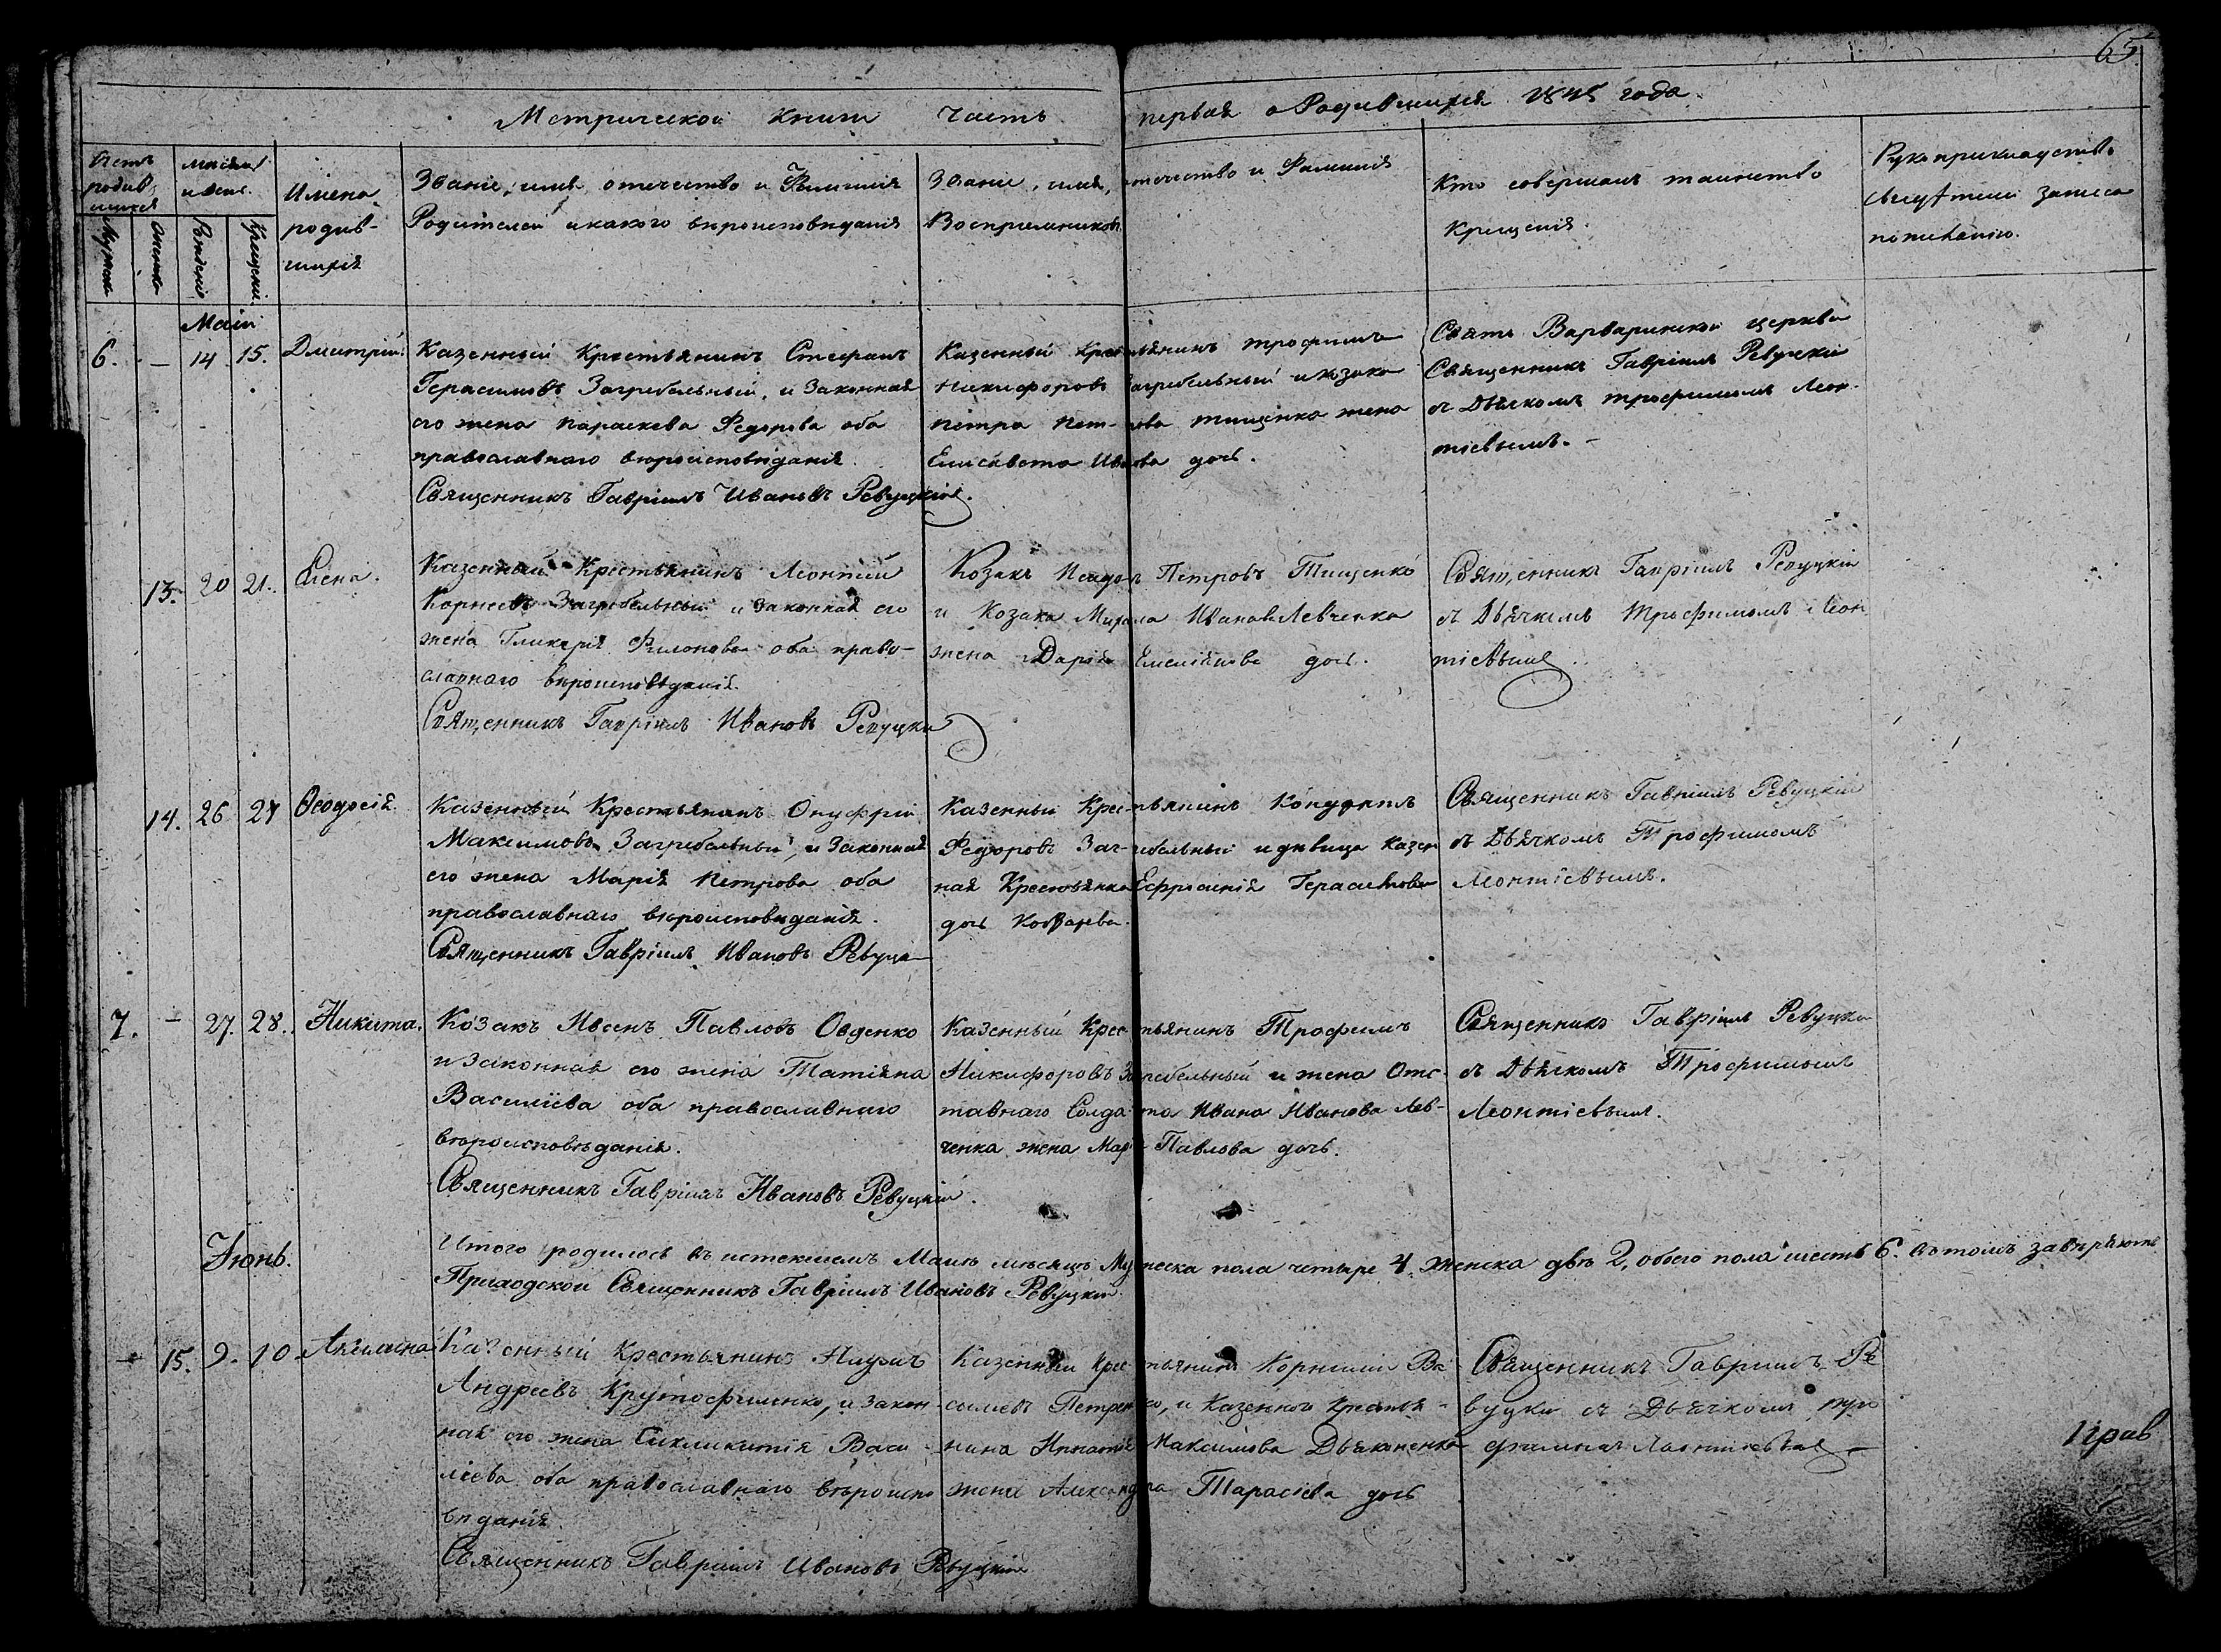 65.
Метрической книги часть первая о Родившихся 1845 года.
Счетъ родившихся
Мужеска
Женска
месяцъ и день.
Рожденія
Крещенія.
Имена родив-
шихся
Званіе, имя, отечество и Фамилія
Родителей и какого вѣроисповѣданія
Званіе, имя, отечество и Фамилія
Воспріемниковъ
Кто совершалъ таинство
Крещенія.
Рукоприкладство
свидѣтелей записа
по желанію.
Маій
6. — 14. 15. Дмитрій.
Казенный Крестьянинъ Стефанъ
Герасимовъ Загребельный, и Законная
его жена Параскева Федорова оба
православнаго вѣроисповѣданія.
Священникъ Гавріилъ Ивановъ Ревуцкій.
Казенный Крестьянинъ Трофимъ
Никифоровъ Загребельный и козака
Петра Петрова Тищенка жена
Елисавета Иванова дочь.
Свято Варваринской церкви
Священникъ Гавріилъ Ревуцкій
съ Дьячкомъ Трофимомъ Леон-
тіевымъ. —
13. 20 21. Елена.
Казенный Крестьянинъ Леонтій
Корнеевъ Загребельный и законная его
жена Гликерія Филонова оба право-
славнаго вѣроисповѣданія.
Священникъ Гавріилъ Ивановъ Ревуцкій
Козакъ Петровъ Тищенко
и Козака Иванова Левченка
жена Дарія Емеліянова дочь.
Священникъ Гавріилъ Ревуцкій
съ Дьячкомъ Трофимомъ Леон-
тіевымъ
14. 26 27 Ѳеодосія.
Казенный Крестьянинъ Онуфрій
Максимовъ Загребельный, и Законная
его жена Марія Петрова оба
православнаго вѣроисповѣданія.
Священникъ Гавріилъ Ивановъ Ревуцк
Казенный Крестьянинъ
Федоровъ Загребельный и дѣвица казен
ная Крестьянка Ефросинія Герасимова
дочь
Священникъ Гавріилъ Ревуцкій
съ Дьячкомъ Трофимомъ
Леонтіевымъ.
7. — 27. 28. Никита.
Козакъ Иванъ Павловъ Овденко
и Законная его жена Татіяна
Василіева оба православнаго
вѣроисповѣданія.
Священникъ Гавріилъ Ивановъ Ревуцкій.
Казенный Крестьянинъ Трофимъ
Никифоровъ Загребельный и жена Отс-
тавнаго Солдата Ивана Иванова Лев-
ченка жена Марія Павлова дочь.
Священникъ Гавріилъ Ревуцкій
съ Дьячкомъ Трофимомъ
Леонтіевымъ.
Итого родилось въ истекшемъ Маиѣ месяцѣ Мужеска пола четыре 4, женска двѣ 2, обоего пола шесть 6. въ томъ завѣряютъ
Приходской Священникъ Гавріилъ Ивановъ Ревуцкій.
Іюнь.
— 15. 9. 10 Акилина
Казенный Крестьянинъ Наумъ
Андреевъ Крутофименко, и закон-
ная его жена Сикликитія Васи-
ліева оба православнаго вѣроиспо
вѣданія.
Священникъ Гавріилъ Ивановъ Ревуцкій
Казенный Крестьянинъ Корнилій Ва-
сильевъ Петренко, и Казенного Крестья-
нина Игнатія Максимова Дьяконенка
жена Александра Тарасіева дочь
Священникъ Гавріилъ Ре
вуцкій съ Дьячкомъ Тро
фимомъ Леонтіевымъ —